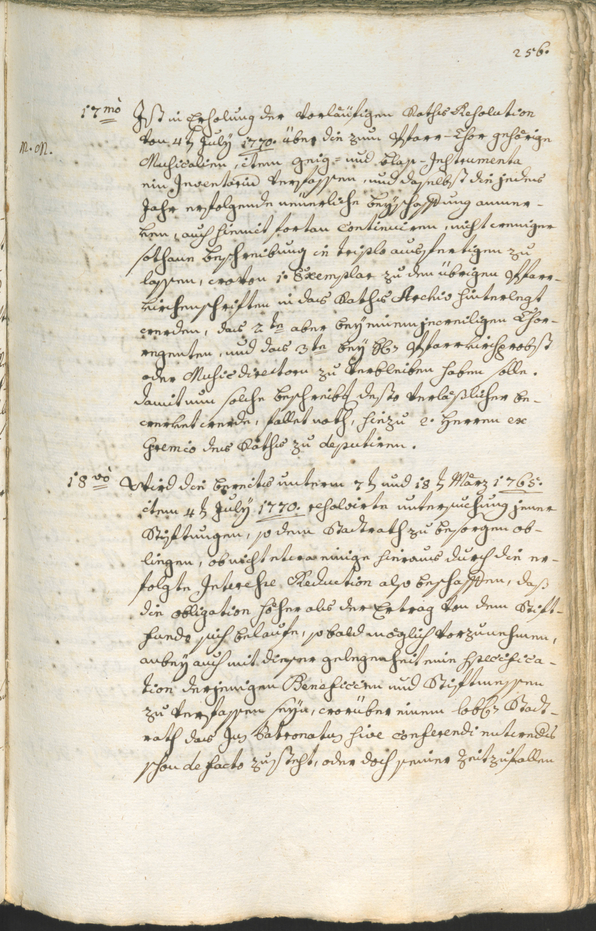 256.
17mo Ist in Erholung der vorläufigen Raths Resolution
von 4t July 1770. über die zum Pfarr-Chor gehörige
N. N.
Musicalien, item geig- und blas-Instrumenta
ein Inventariu verfassen, und daselbst die jedens
Jahr erfolgende neuerliche beyschaffung anmer-
ken, auch hiemit fortan continuiren, nicht weniger
sothane beschreibung in triplo ausfertigen zu
lassen, wovon 1. Exemplar zu den übrigen Pfarr-
kirchenschriften in das Raths Archiv hinterlegt
werden, das 2te aber bey einem jeweiligen Chor-
regenten, und das 3te bey Pfarrkirchprobst
oder Music directorn zu verbleiben haben solle.
damit nun solche beschreibg desto verläßlicher be-
werket werde, fallet noth, hiezu 2. Herren ex
Gremio des Raths zu deputiren.
18vo Wird die bereits unterm 7t und 18t März 1765.
item 4t July 1770. resolvirte untersuchung jener
Stiftungen, so dem Stadtrath zu besorgen ob-
liegen, ob nicht etwa einige hieraus durch die er-
folgte Interesse Reduction also beschaffen, daß
die obligation höher als der Ertrag von dem Stift-
fundo sich belaufe, so bald möglich vorzunehmen,
anbey auch mit dieser gelegenheit eine specifica-
tion derjenigen Beneficien und Stiftmessen
zu verfassen seyn, worüber einem löbl Stadt-
rath das Jus Patronatus sive conferendi entweders
schon de facto zusteht, oder doch seiner Zeit zufallen